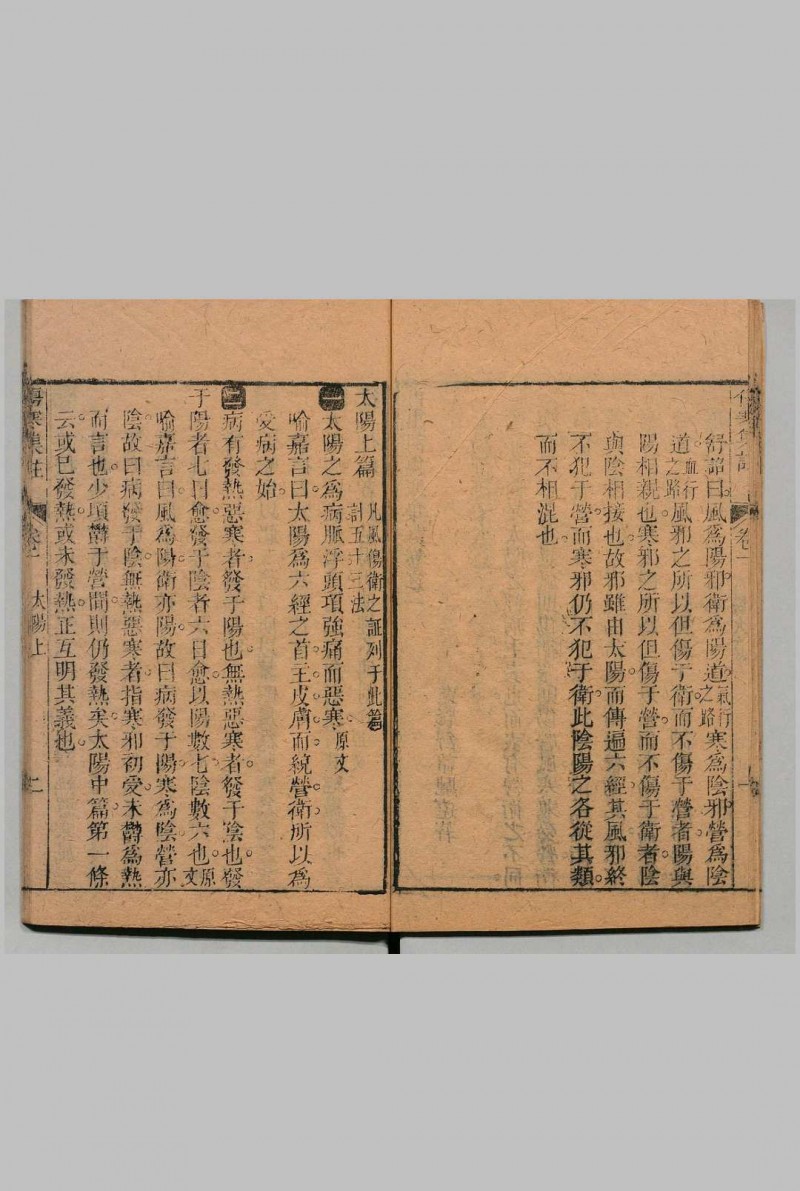 舒詔曰風爲陽邪衛爲陽道氣行之路寒爲陰邪營爲陰
道血行之路風邪之所以但傷于衛而不傷于營者陽與
陽相親也寒邪之所以但傷于營而不傷于衛者陰
與陰相接也故邪雖由太陽而傳遍六經其風邪終
不犯于營而寒邪仍不犯于衛此陰陽之各從其類
而不相混也
太陽上篇 凡風傷衛之証列于此篇計五十三法
一太陽之爲病脈浮頭項強痛而惡寒原文
喻嘉言曰太陽爲六經之首主皮膚而統營衛所以爲
受病之始
二病有發熱惡寒者發于陽也無熱惡寒者發于陰也發
于陽者七日愈發于陰者六日愈以陽數七陰數六也原文
喻嘉言曰風爲陽衛亦陽故曰病發于陽寒爲陰營亦
陰故曰病發于陰無熱惡寒者指寒邪初受未鬱爲熱
而言也少頃鬱于營間則仍發熱矣太陽中篇第一條
云或已發熱或未發熱正互明其義也
傷寒集註 卷一 太陽上 二